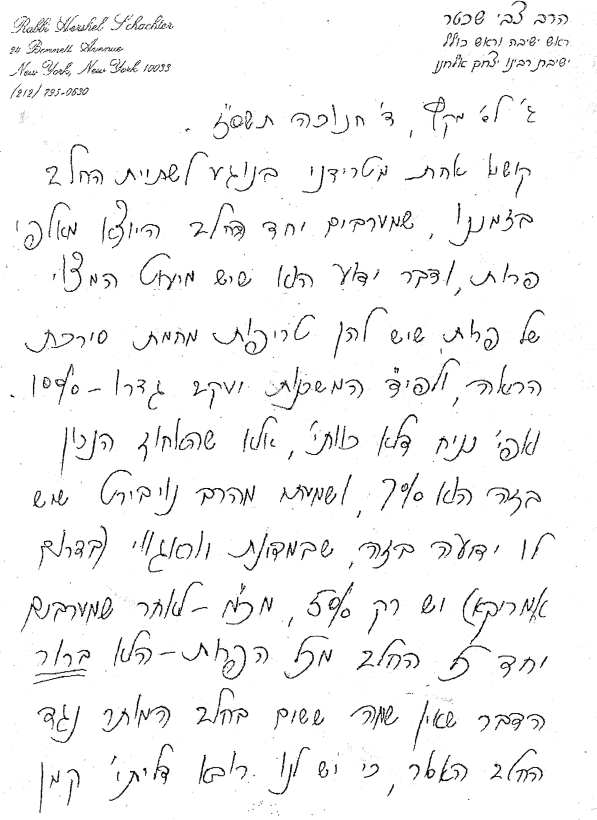 Rabbi Hershel Schachter
24 Bennett Avenue
New York, New York 10033
(212) 795-0630
הרב צבי שכטר
ראש ישיבה וראש כולל
ישיבת רבינו יצחק אלחנן
ג' לס' מקץ, ד' חנוכה תשס"ז.
קושיא אחת מטרידני בנוגע לשתיית החלב
בזמננו, שמערבים יחד החלב היוצא מאלפי
פרות, ודבר ידוע הוא שיש מיעוט המצוי
של פרות שיש להן טריפות מחמת סירכת
הראה, ולפי"ד המשכנות יעקב גדרו - 10%.
ואפי' נניח דלא כוותי', אלא שהאחוז הנכון
בזה הוא 7%, ושמעתי מהרב נויבירט שיש
לו ידיעה בזה, שבמדינת (בדרום
אמריקא) יש רק 5%, מכ"מ - לאחר שמערבים
יחד כל החלב מכל הפרות - הלא ברור
הדבר שאין שמה ששים בחלב המותר נגד
החלב האסור, כי יש לנו רובא דליתי' קמן